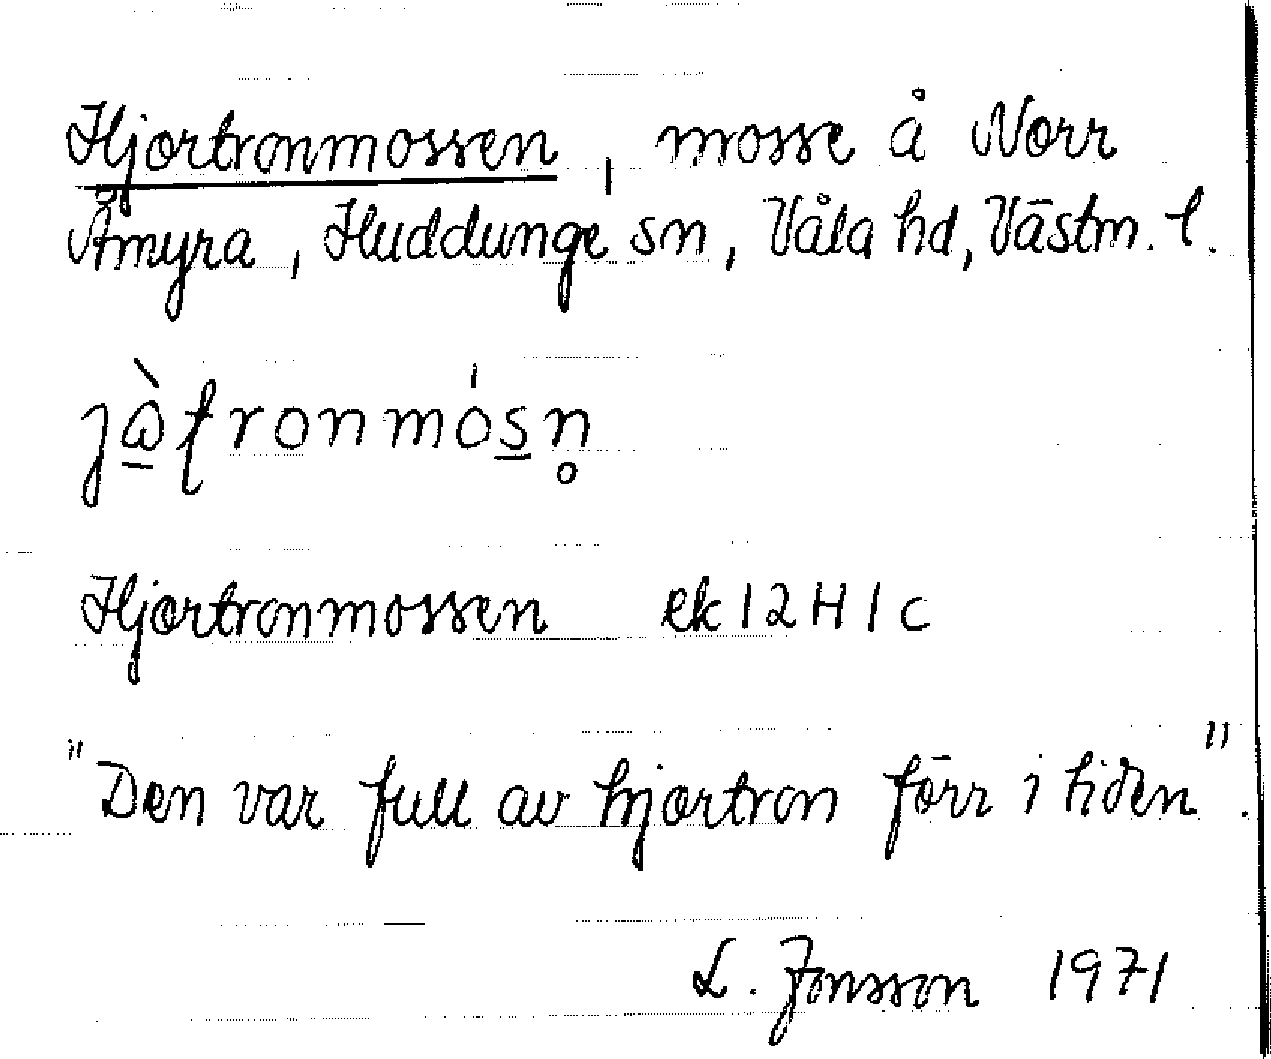 Hjortronmossen, mosse å Norr
Åmyra, Huddunge sn, Våla hd, Västm. l.
jὼʈronmósn̥
Hjortronmossen ek 12H1c
"Den var full av hjortron förr i tiden".
L. Jonsson 1971